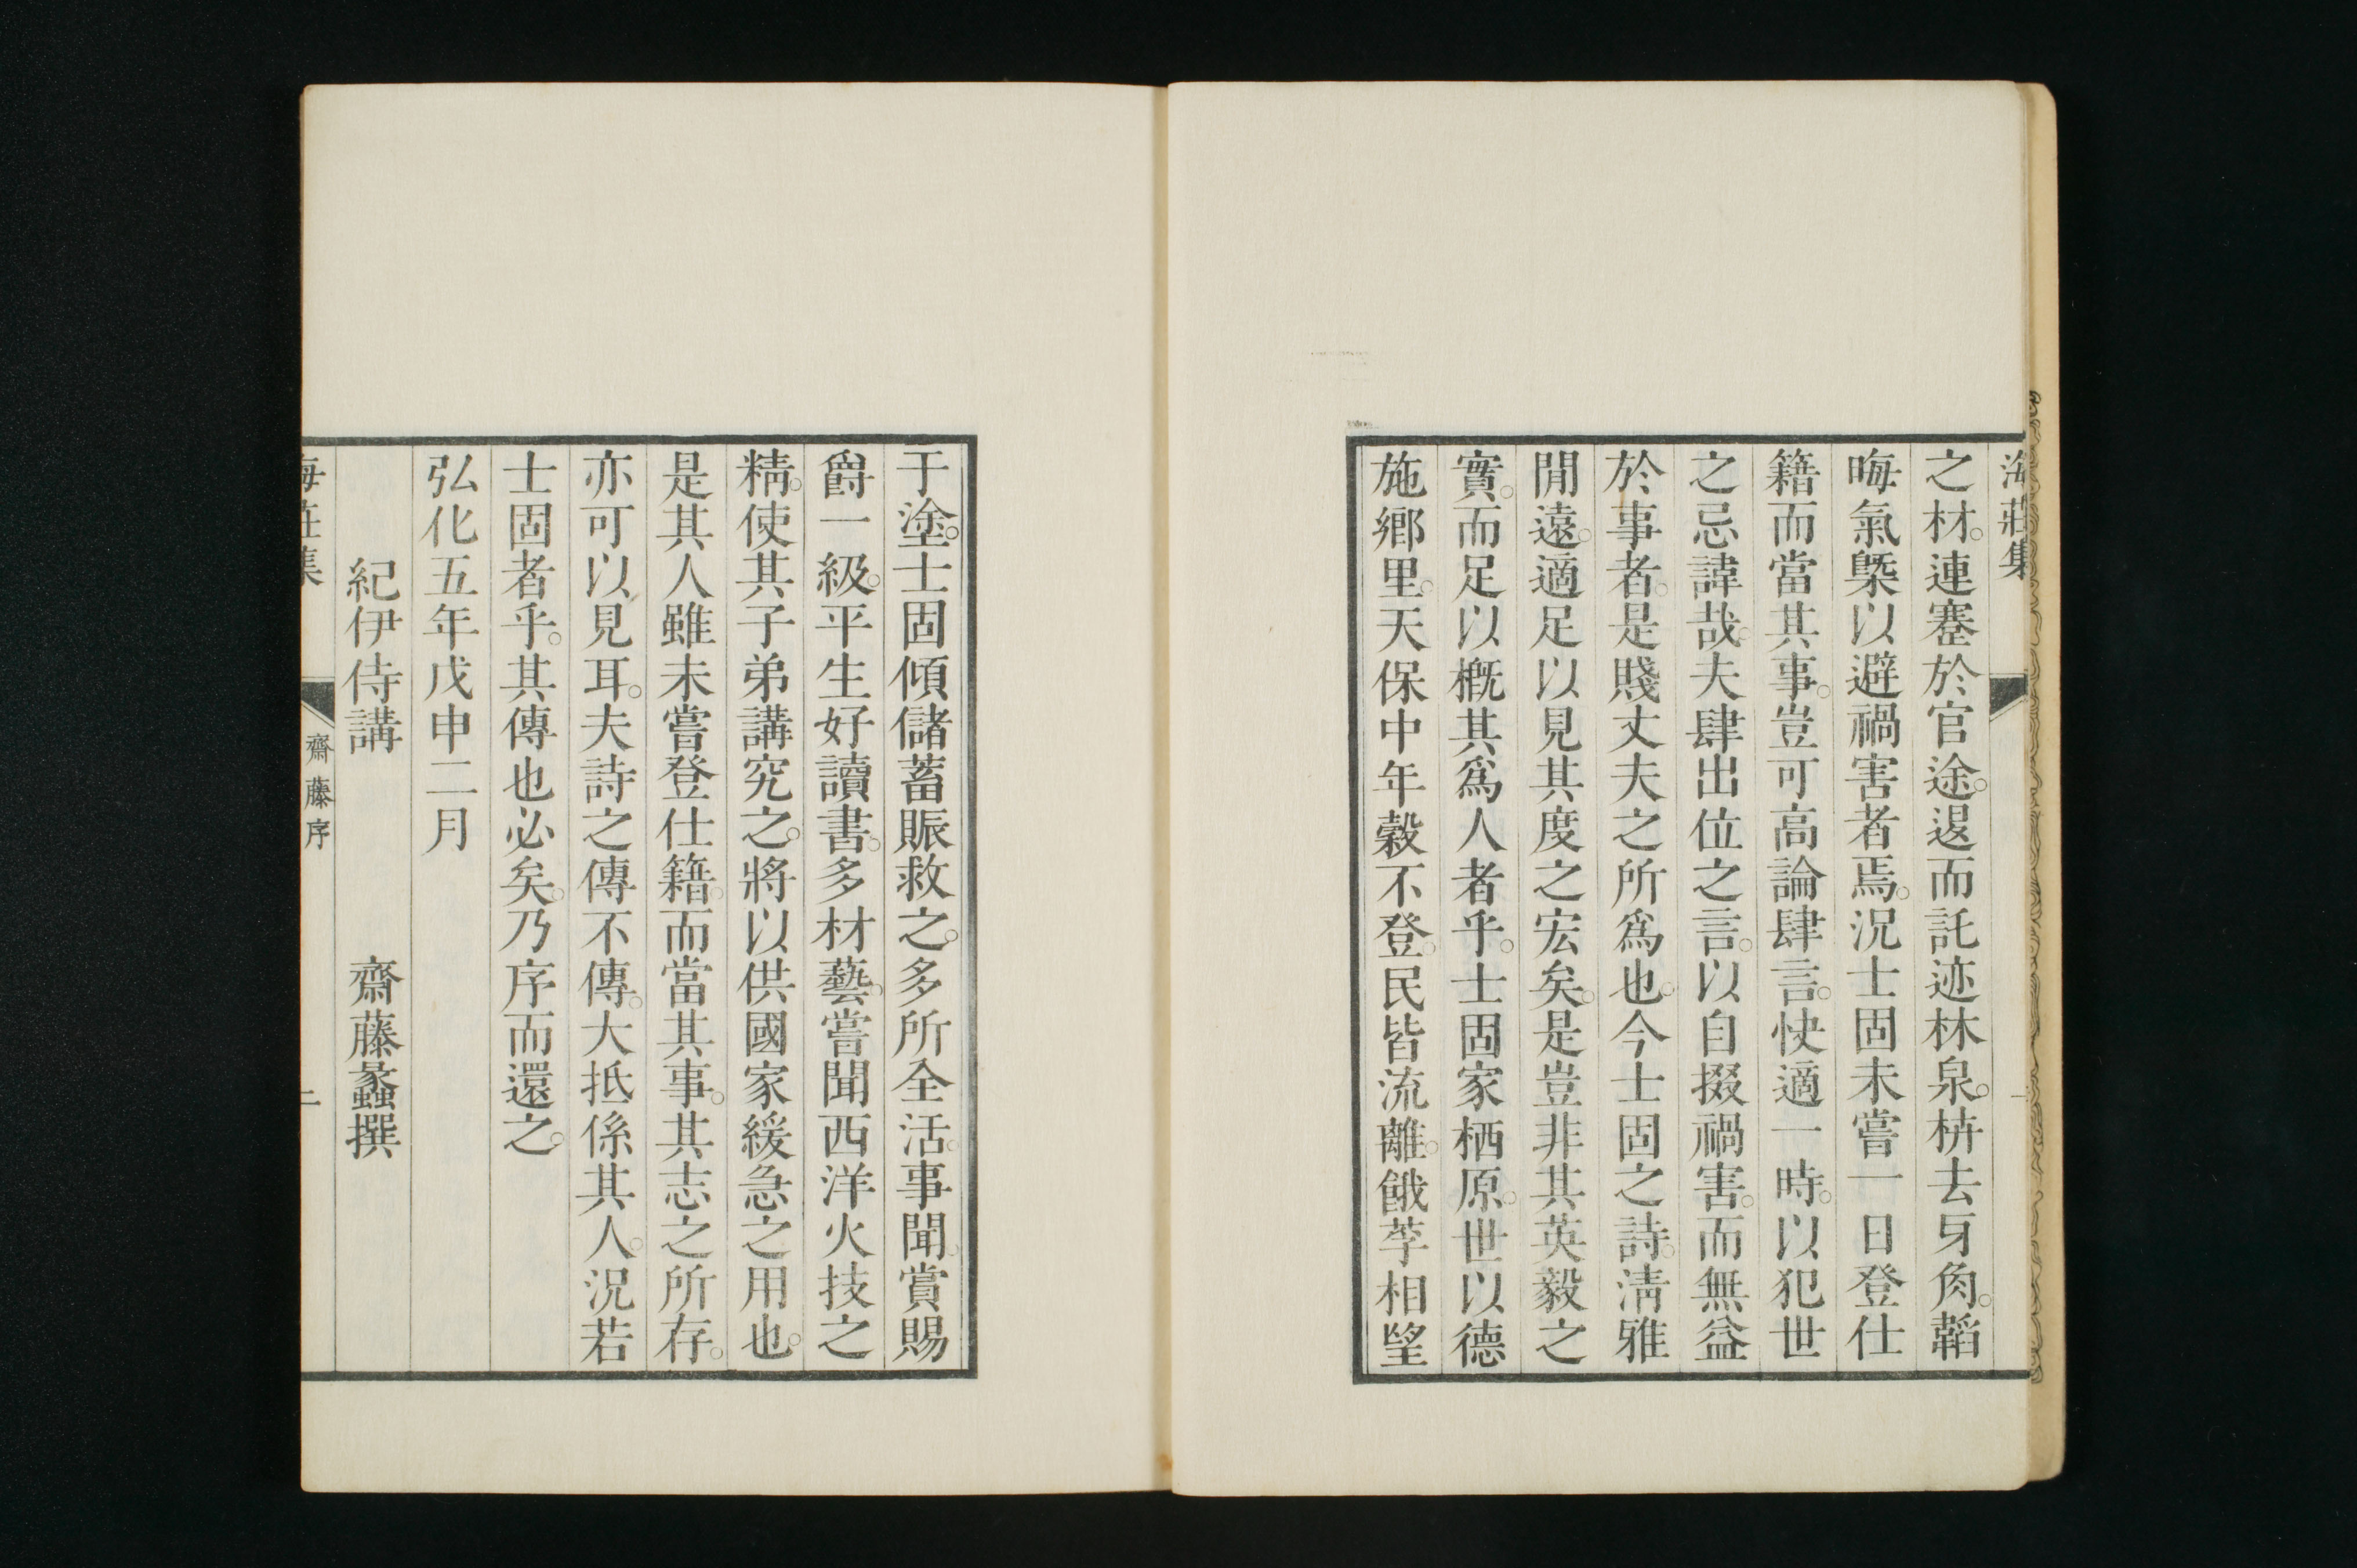 海莊集
之材。連蹇於官途。退而託迹林泉。栟去牙角。韜
晦氣槩以避禍害者焉。況士固未嘗一日登仕
籍而當其事。豈可高論肆言。快適一時。以犯世
之忌諱哉。夫肆出位之言。以自掇禍害。而無益
於事者。是賤丈夫之所爲也。今士固之詩。淸雅
閒遠。適足以見其度之宏矣。是豈非其英毅之
實。而足以概其爲人者乎。士固家栖原。世以德
施鄕里。天保中年穀不登。民皆流離。餓莩相望
于塗。士固傾儲蓄賑救之。多所全活。事聞。賞賜
爵一級。平生好讀書。多材藝。嘗聞西洋火技之
精。使其子弟講究之。將以供國家緩急之用也。
是其人雖未嘗登仕籍。而當其事。其志之所存。
亦可以見耳。夫詩之傳不傳。大抵係其人。況若
士固者乎。其傳也必矣。乃序而還之。
弘化五年戊申二月
紀伊侍講　齋藤蠡撰
海莊集　齋藤序　二